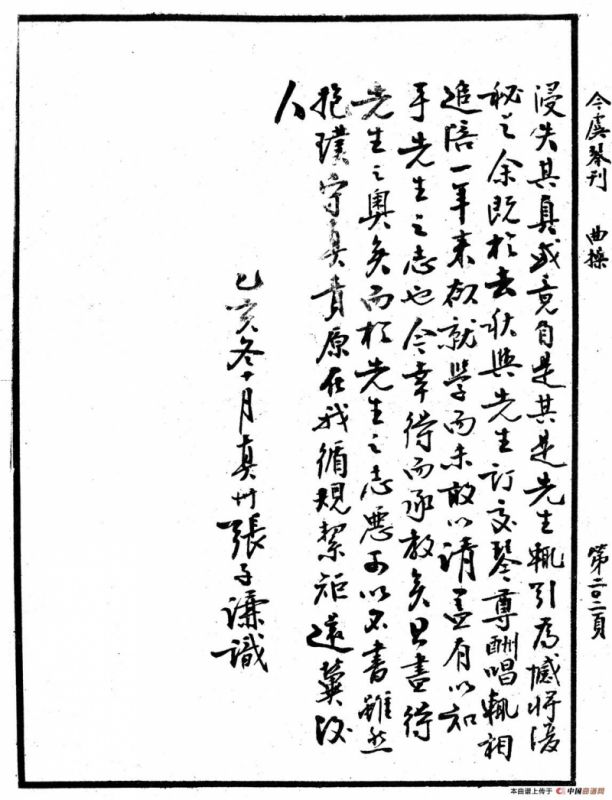 今虞琴刊 曲操 第二〇二頁
浸失其真或竟自是其是先生輒引為憾將復
秘之余既於去秋與先生訂交琴尊酬唱輒相
追陪一年來欲就學而未敢以請蓋有以知
乎先生之志也今幸得而承教矣且盡得
先生之奧矣而於先生之志應可以不書雖然
抱璞守真責原在我循規絜矩還冀後
人
乙亥冬十月真州張子謙識
本曲谱上传于 中国曲谱网